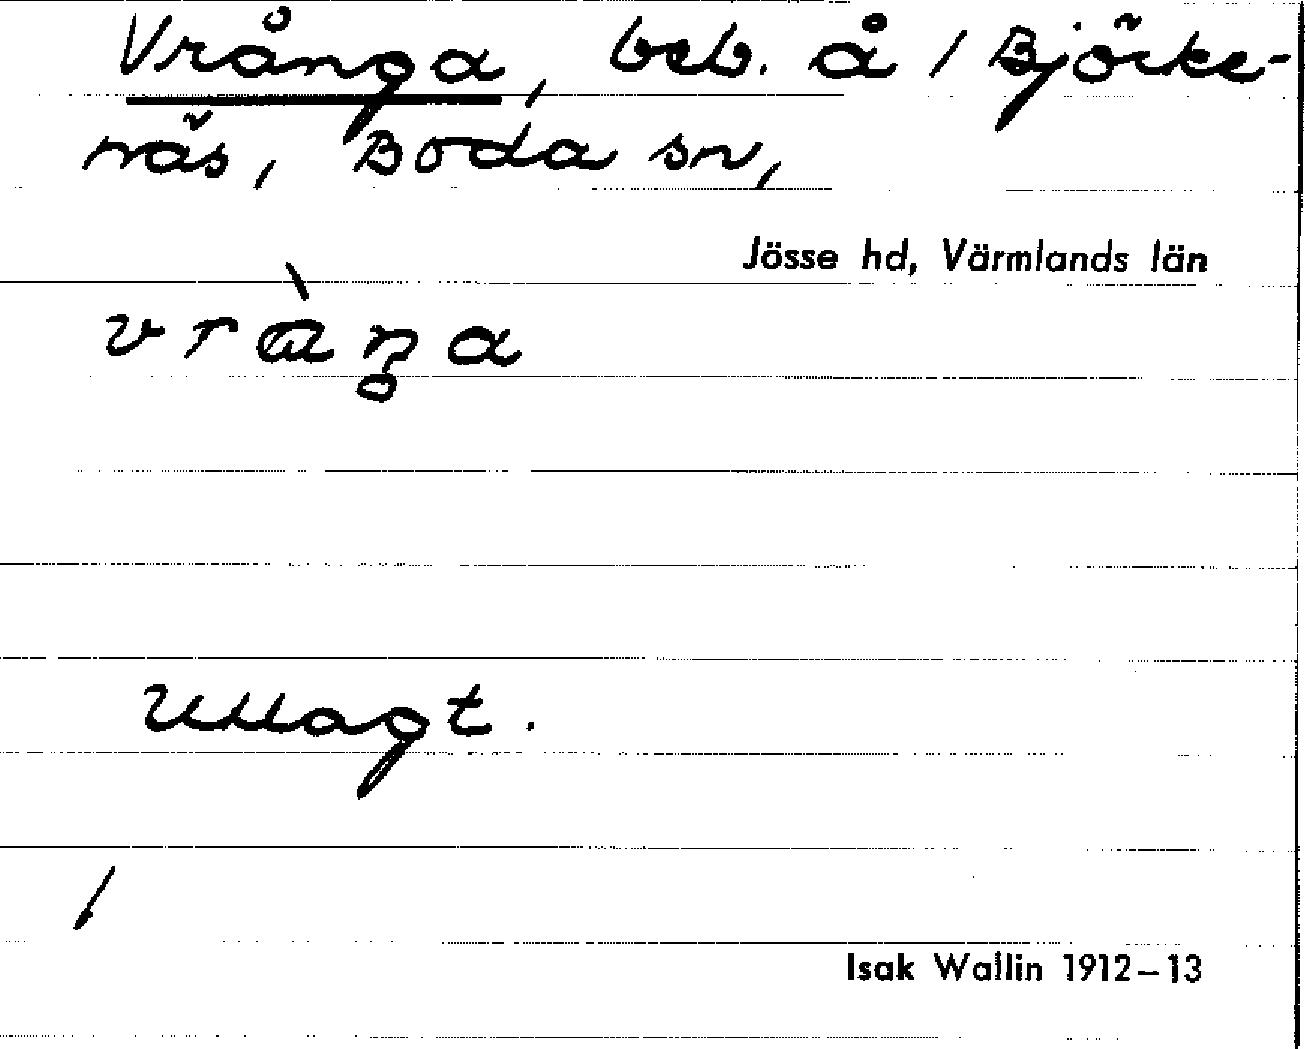 Vrånga, beb. å / Björke-
näs, Boda sn,
Jösse hd, Värmlands län
Utlagt.
/
Isak Wallin 1912–13